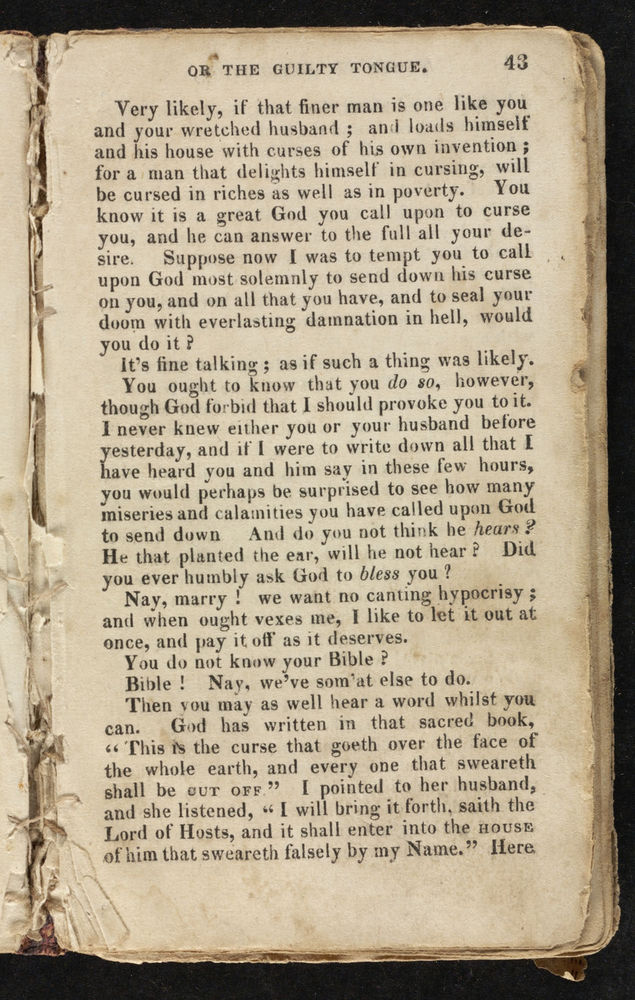 OR THE GUILTY TONGUE. 43
Very likely, if that finer man is one like you
and your wretched husband ; and loads himself
and his house with curses of his own invention ;
for a man that delights himself in cursing, will
be cursed in riches as well as in poverty. You
know it is a great God you call upon to curse
you, and he can answer to the full all your de-
sire. Suppose now I was to tempt you to call
upon God most solemnly to send down his curse
on you, and on all that you have, and to seal your
doom with everlasting damnation in hell, would
you do it ?
It's fine talking ; as if such a thing was likely.
You ought to know that you do so, however,
though God forbid that I should provoke you to it.
I never knew either you or your husband before
yesterday, and if I were to write down all that I
have heard you and him say in these few hours,
you would perhaps be surprised to see how many
miseries and calamities you have called upon God
to send down And do you not think he hears ?
He that planted the ear, will he not hear ? Did
you ever humbly ask God to bless you ?
Nay, marry ! we want no canting hypocrisy ;
and when ought vexes me, I like to let it out at
once, and pay it off as it deserves.
You do not know your Bible ?
Bible ! Nay, we've som'at else to do.
Then you may as well hear a word whilst you
can. God has written in that sacred book,
“ This is the curse that goeth over the face of
the whole earth, and every one that sweareth
shall be CUT OFF.” I pointed to her husband,
and she listened, “ I will bring it forth, saith the
Lord of Hosts, and it shall enter into the HOUSE
of him that sweareth falsely by my Name.” Here